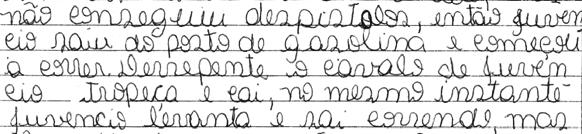 não conseguiu despistalos, então juven
cio saiu do posto de gasolina e começou
a correr. Derrepente o cavalo de juvên
cio tropeça e cai, no mesmo instante
juvencio levanta e sai correndo, mas